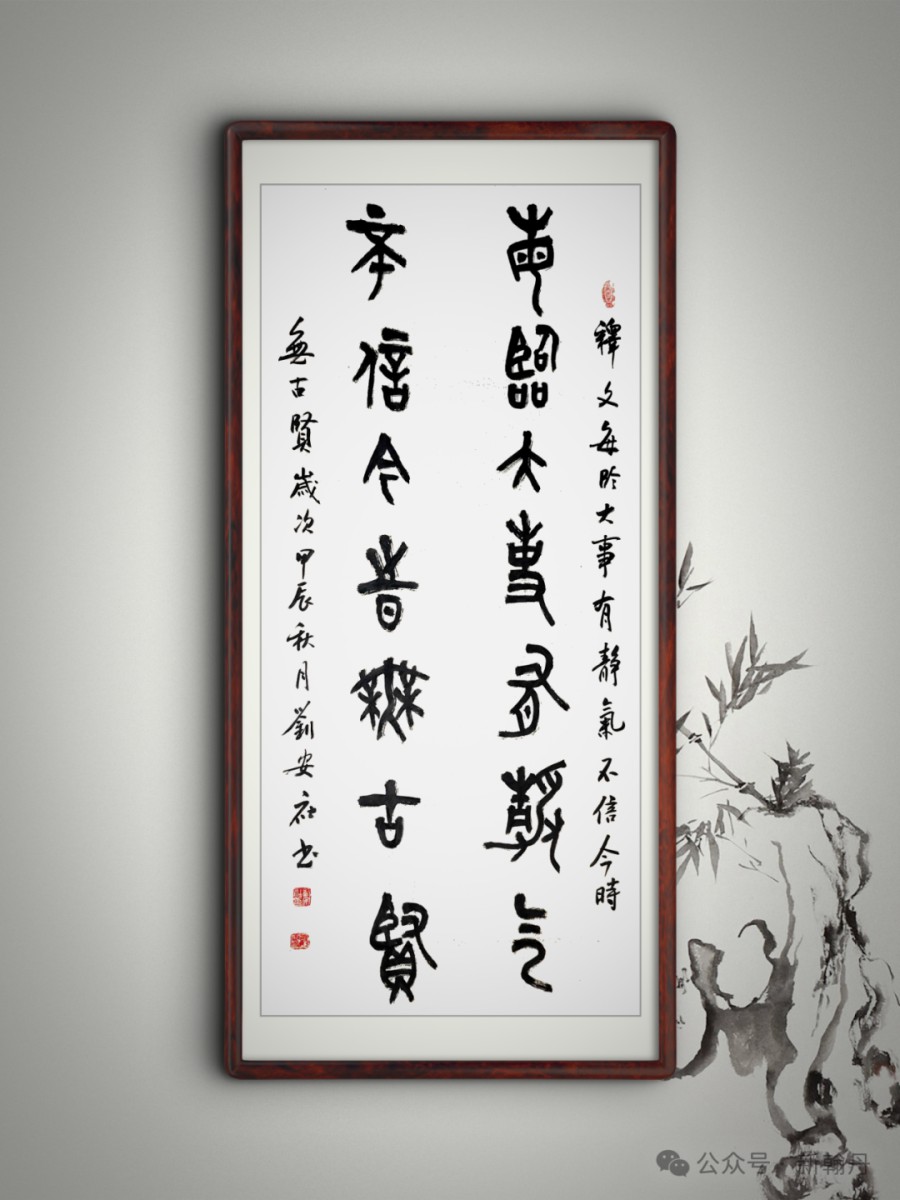 釋文每於大事有靜氣不信今時
每臨大事有靜气
不信今時無古賢
無古賢歲次甲辰秋月劉安社书
公众号 · 新翰丹